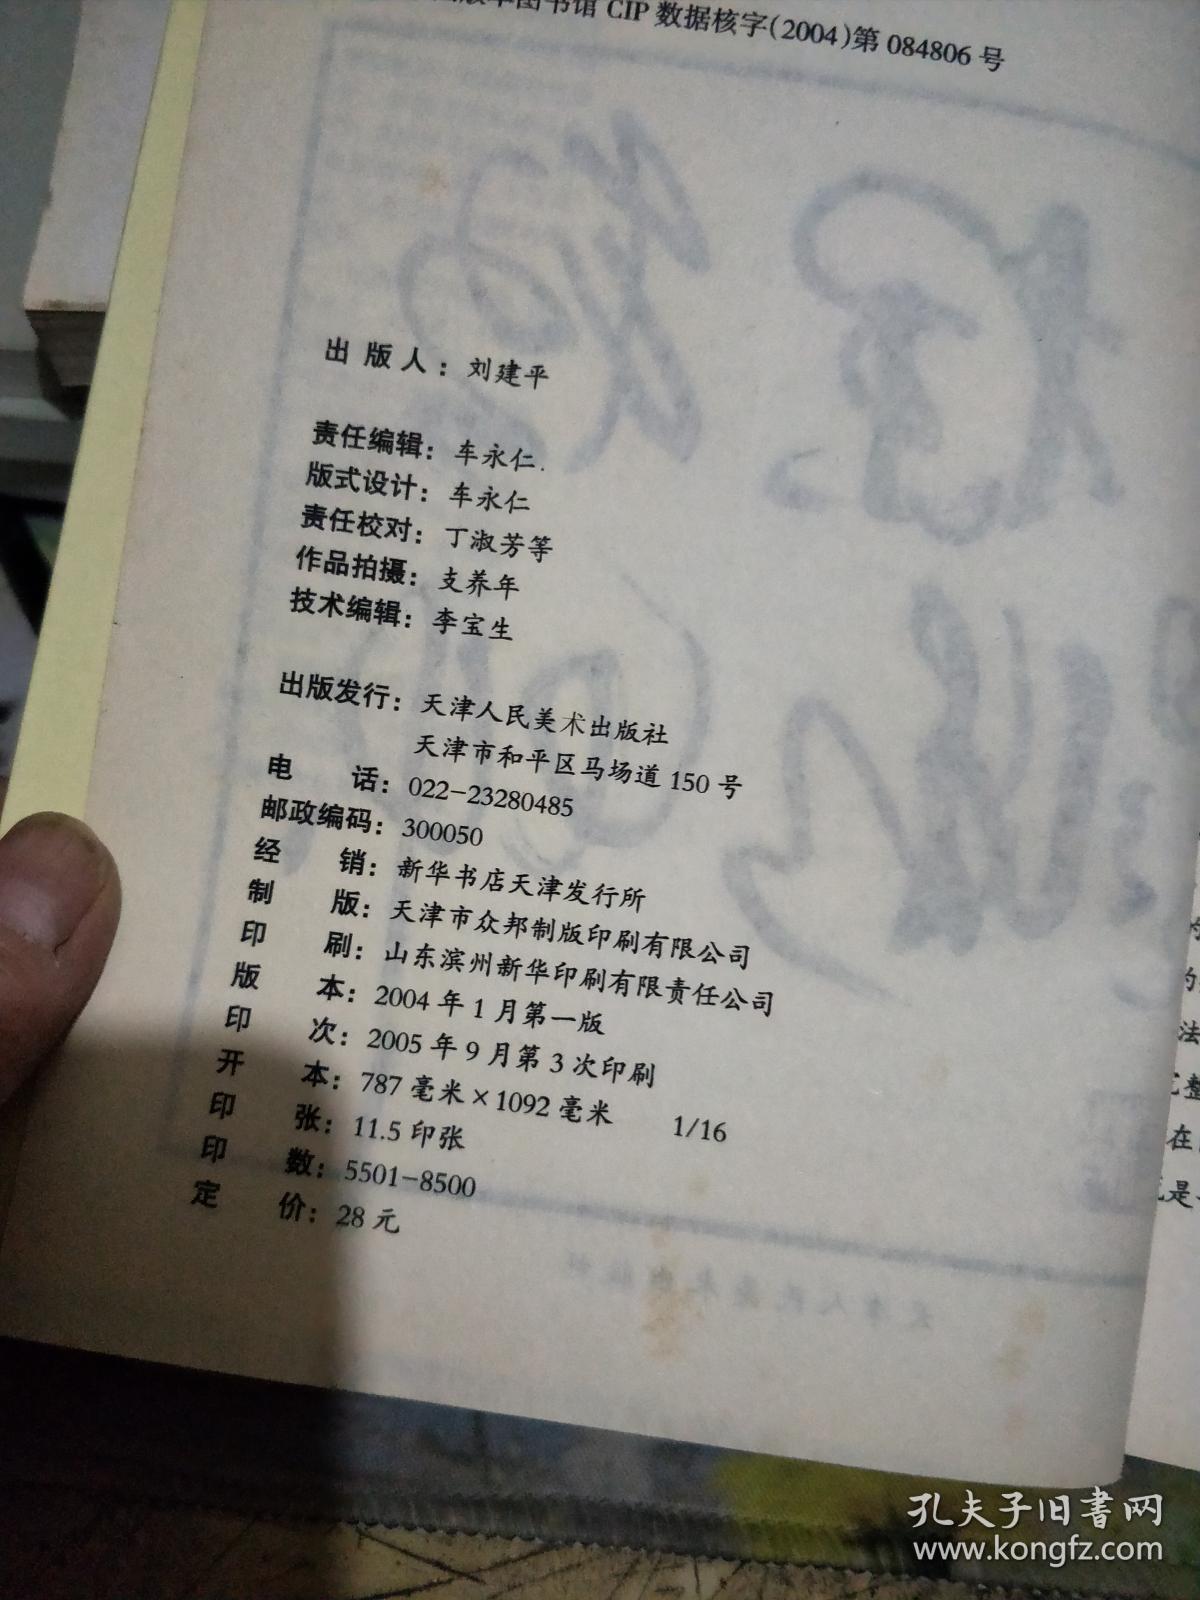 图书馆 CIP 数据核字(2004)第 084806 号
出 版 人：刘建平
责任编辑：车永仁
版式设计：车永仁
责任校对：丁淑芳等
作品拍摄：支养年
技术编辑：李宝生
出版发行：天津人民美术出版社
天津市和平区马场道 150 号
电　　话：022-23280485
邮政编码：300050
经　　销：新华书店天津发行所
制　　版：天津市众邦制版印刷有限公司
印　　刷：山东滨州新华印刷有限责任公司
版　　本：2004 年 1 月第一版
印　　次：2005 年 9 月第 3 次印刷
开　　本：787 毫米×1092 毫米　　1/16
印　　张：11.5 印张
印　　数：5501-8500
定　　价：28 元
法
整
在
是
孔夫子旧书网
www.kongfz.com